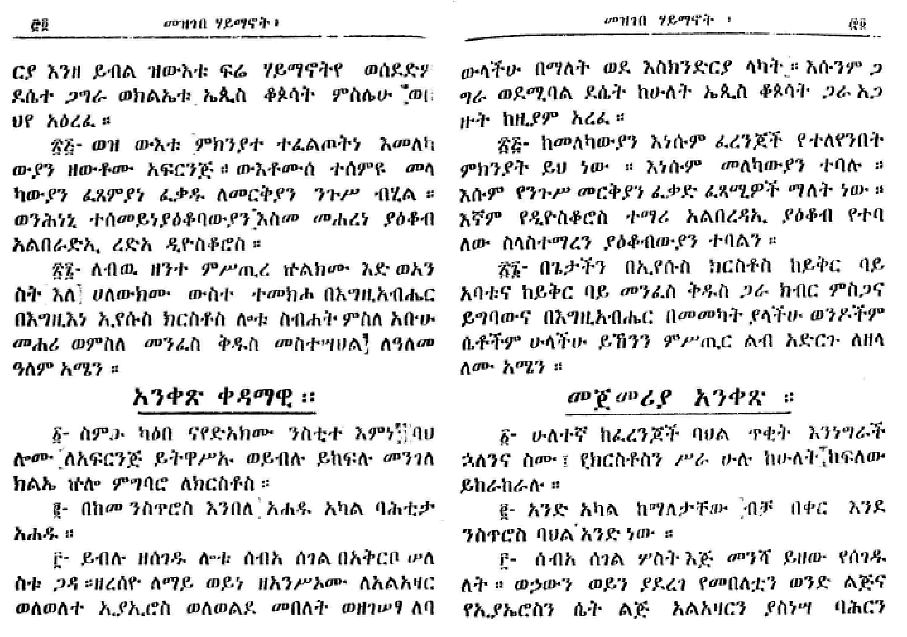 መዝገበ ሃይማኖት ፥
ርያ እንዘ ይብል ዝውእቱ ፍሬ ሃይማኖትየ ወሰደድዎ
ደሴተ ጋግራ ወክልኤቱ ኤጲስ ቆጶሳት ምስሌሁ
ህየ አዕረፈ ።
፳፭- ወዝ ውእቱ ምክንያተ ተፈልጦትነ እመለካ
ውያን ዘውቶሙ አፍርንጅ ። ውእቶሙሰ ተሰምዩ መላ
ካውያን ፈጻምያነ ፈቃዱ ለመርቅያን ንጉሥ ብሂል ።
ወንሕነኒ ተሰመይነያዕቆባውያን እስመ መሐረነ ያዕቆብ
አልበራድኢ ረድአ ዲዮስቆሮስ ።
፳፮- ለብዉ ዘንተ ምሥጢረ ኵልክሙ እድ ወአን
ስት እለ ሀለውክሙ ውስተ ተመክሖ በእግዚአብሔር
በእግዚእነ ኢየሱስ ክርስቶስ ሎቱ ስብሐት ምስለ አቡሁ
መሐሪ ወምስለ መንፈስ ቅዱስ መስተሣህል ለዓለመ
ዓለም አሜን ።
አንቀጽ ቀዳማዊ ።
፩- ስምዑ ካዕበ ናየድአክሙ ንስቲተ እምነ ባህ
ሎሙ ለአፍርንጅ ይትዋሥኡ ወይብሉ ይከፍሉ መንገለ
ክልኤ ኵሎ ምግባሮ ለክርስቶስ ።
፪- በከመ ንስጥሮስ እንበለ አሐዱ አካል ባሕቲታ
አሐዱ ።
፫- ይብሉ ዘሰገዱ ሎቱ ሰብአ ሰገል በአቅርቦ ሠለ
ስቱ ጋዳ ።ዘረሰዮ ለማይ ወይነ ዘአንሥኦሙ ለአልአዛር
ወለወለተ ኢያኢሮስ ወለወልደ መበለት ወዘገሠፃ ለባ
መዝገበ ሃይማኖት ፥
ውላችሁ በማለት ወደ እስክንድርያ ላካት ። እሱንም ጋ
ግራ ወደሚባል ደሴት ከሁለት ኤጲስ ቆጶሳት ጋራ አጋ
ዙት ከዚያም አረፈ ።
፳፭- ከመለካውያን እነሱም ፈረንጆች የተለየንበት
ምክንያት ይህ ነው ። እነሱም መለካውያን ተባሉ ።
እሱም የንጉሥ መርቅያን ፈቃድ ፈጻሚዎች ማለት ነው ።
እኛም የዲዮስቆሮስ ተማሪ አልበረዳኢ ያዕቆብ የተባ
ለው ስላስተማረን ያዕቆብውያን ተባልን ።
፳፮- በጌታችን በኢየሱስ ክርስቶስ ከይቅር ባይ
አባቱና ከይቅር ባይ መንፈስ ቅዱስ ጋራ ክብር ምስጋና
ይግባውና በእግዚአብሔር በመመካት ያላችሁ ወንዶችም
ሴቶችም ሁላችሁ ይኸንን ምሥጢር ልብ አድርጉ ለዘላ
ለሙ አሜን ።
መጀመሪያ አንቀጽ ።
፩- ሁለተኛ ከፈረንጆች ባህል ጥቂት እንነግራች
ኋለንና ስሙ ፤ የክርስቶስን ሥራ ሁሉ ከሁለት ከፍለው
ይከራከራሉ ።
፪- አንድ አካል ከማለታቸው ብቻ በቀር እንደ
ንስጥሮስ ባህል አንድ ነው ።
፫- ሰብአ ሰገል ሦስት እጅ መንሻ ይዘው የሰገዱ
ለት ። ውኃውን ወይን ያደረገ የመበለቷን ወንድ ልጅና
የኢያኤሮስን ሴት ልጅ አልአዛርን ያስነሣ ባሕርን